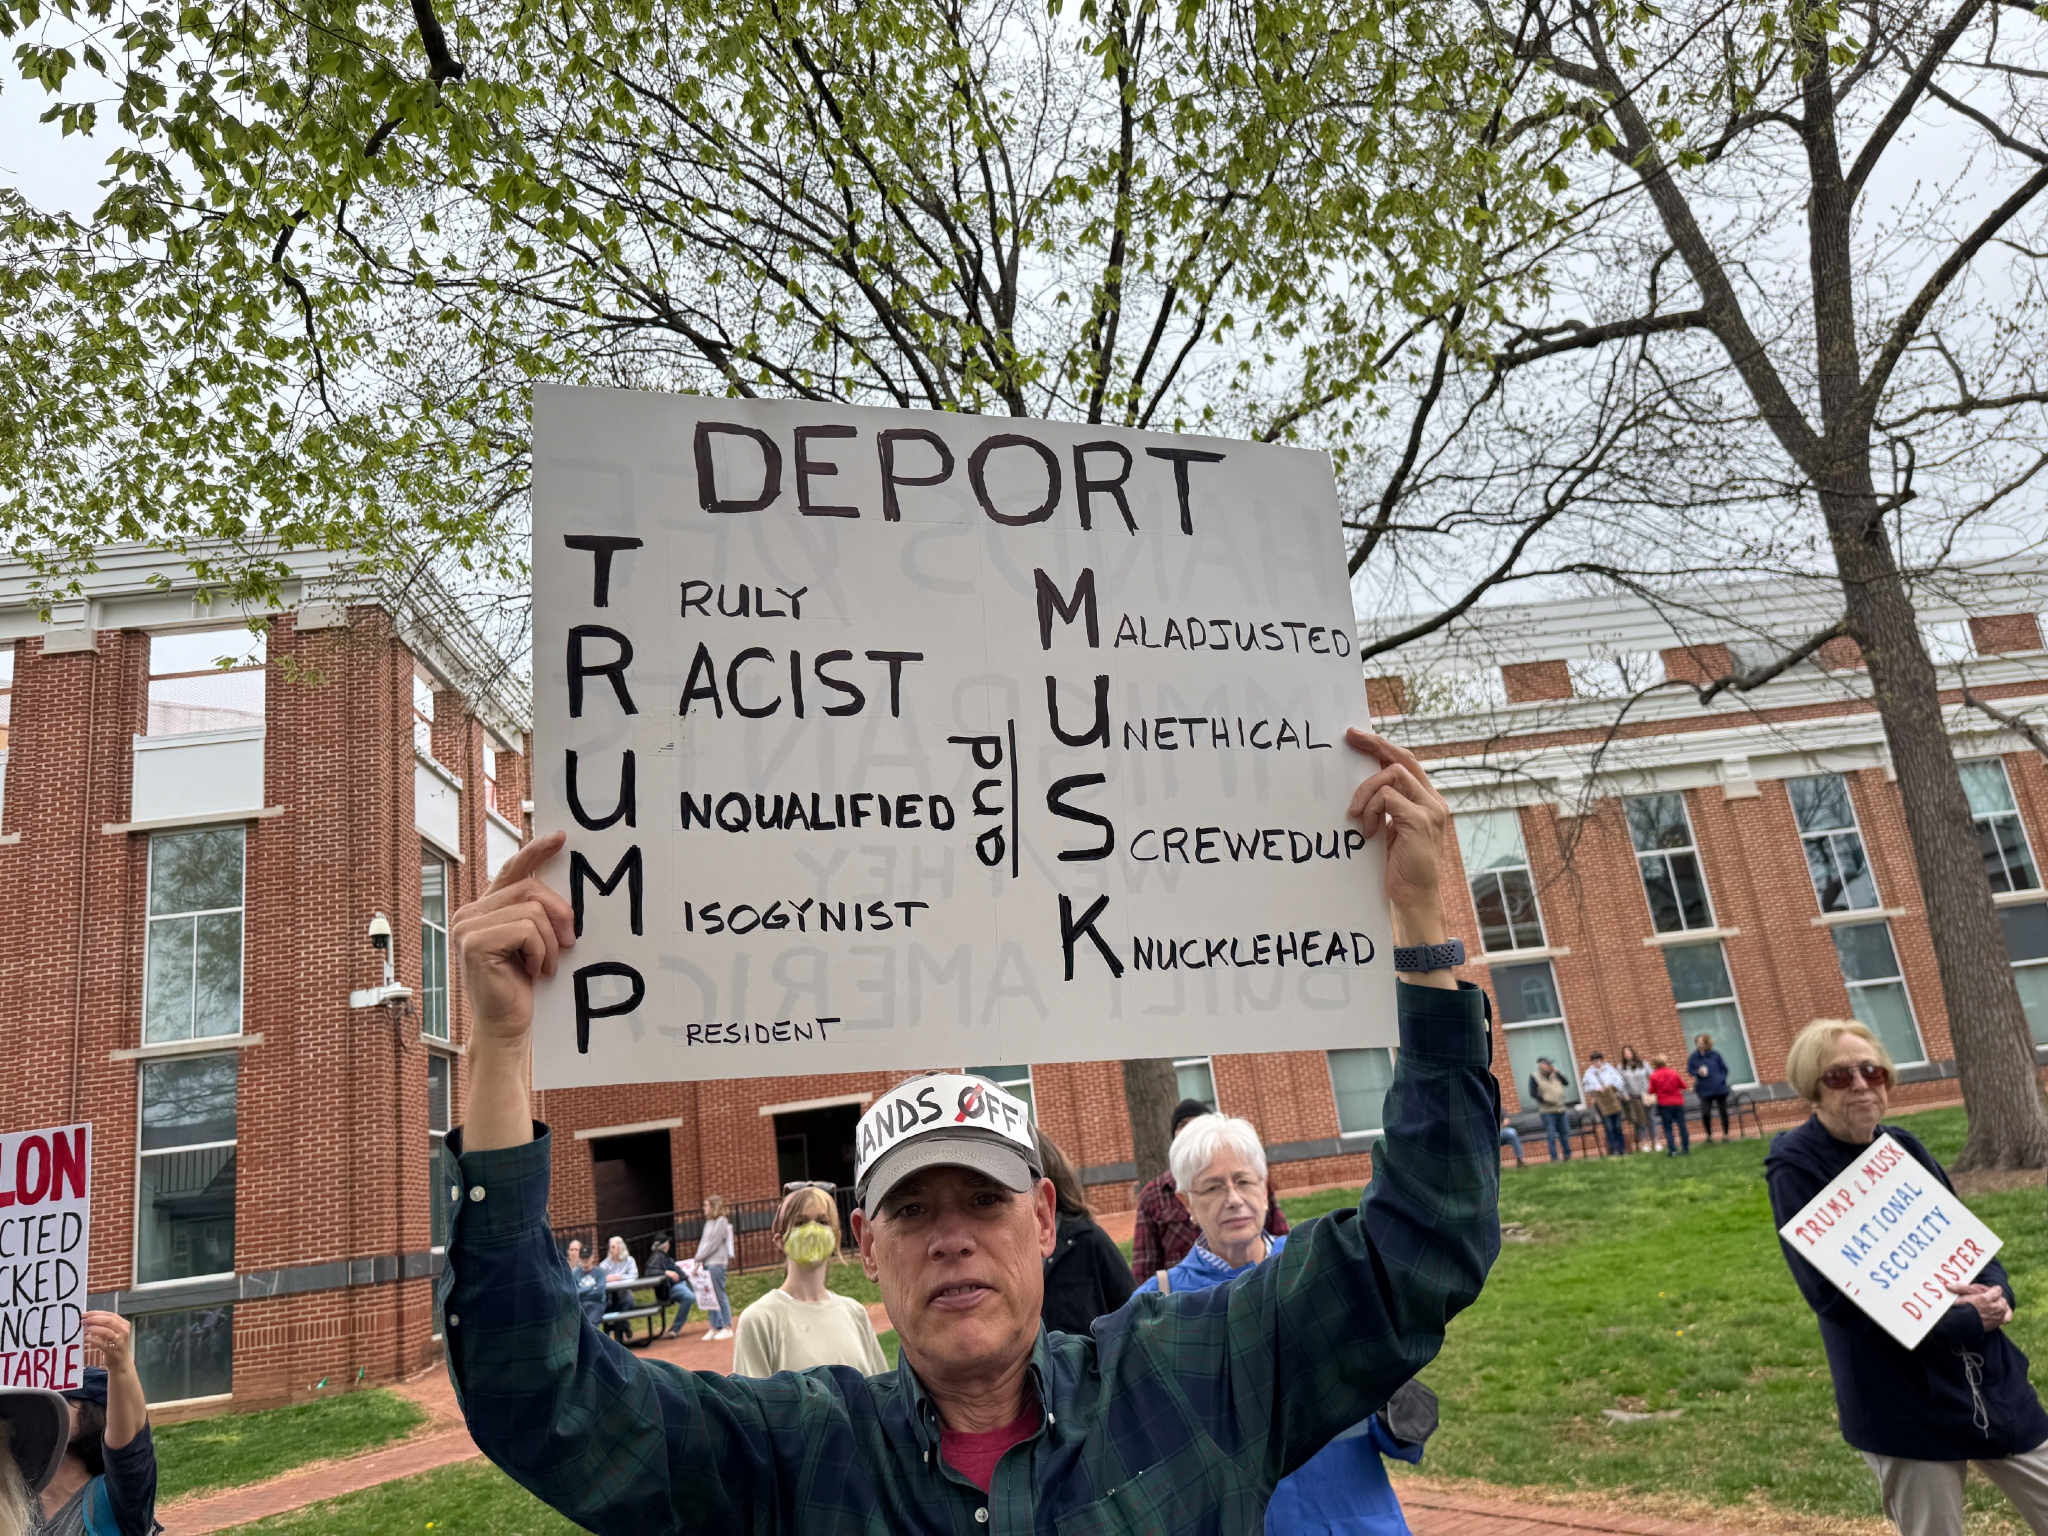 DEPORT
TRULY
RACIST
UNQUALIFIED
MISOGYNIST
PRESIDENT
and
MALADJUSTED
UNETHICAL
SCREWEDUP
KNUCKLEHEAD
HANDS OFF
HANDS OFF
IMMIGRANTS
WE/THEY
BUILT AMERICA
LON
CTED
CKED
NCED
TABLE
TRUMP & MUSK
= NATIONAL
SECURITY
DISASTER